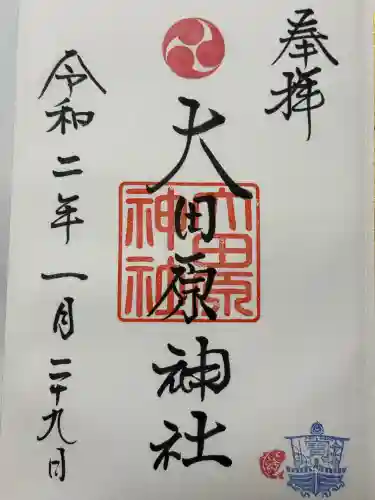 奉拝
大田原神社
大田原神社
令和二年一月二十九日